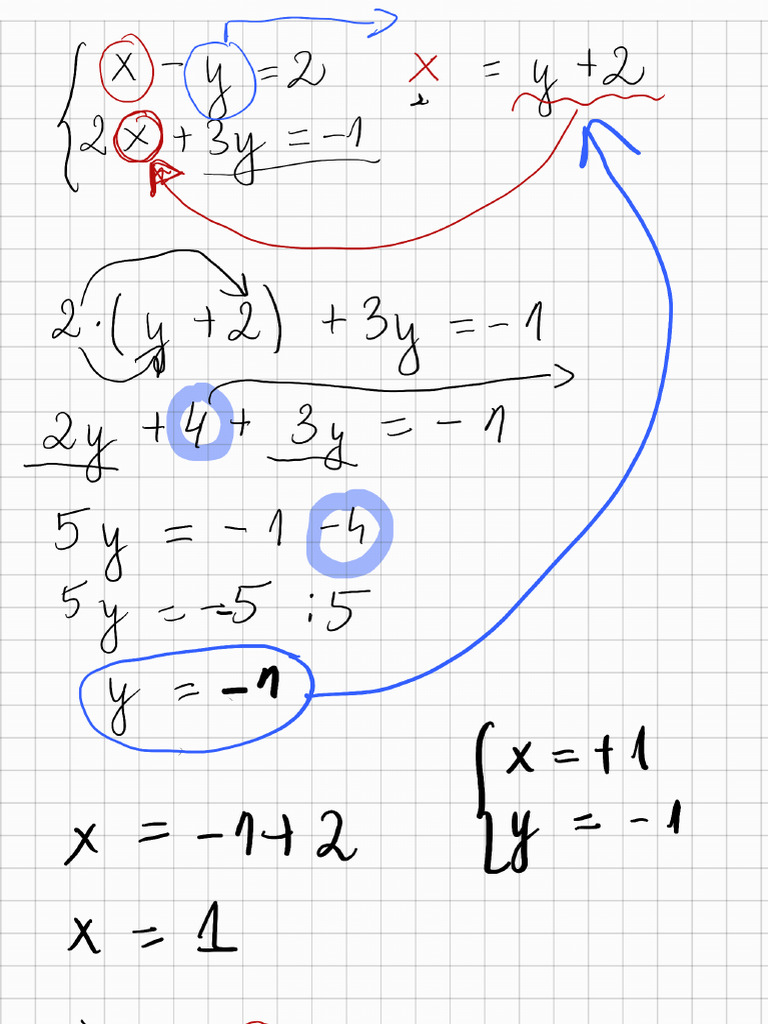 x - y = 2 x = y + 2
2x + 3y = -1
2·(y + 2) + 3y = -1
2y + 4 + 3y = -1
5y = -1 -4
5y = -5 :5
y = -1
x = +1
y = -1
x = -1+2
x = 1